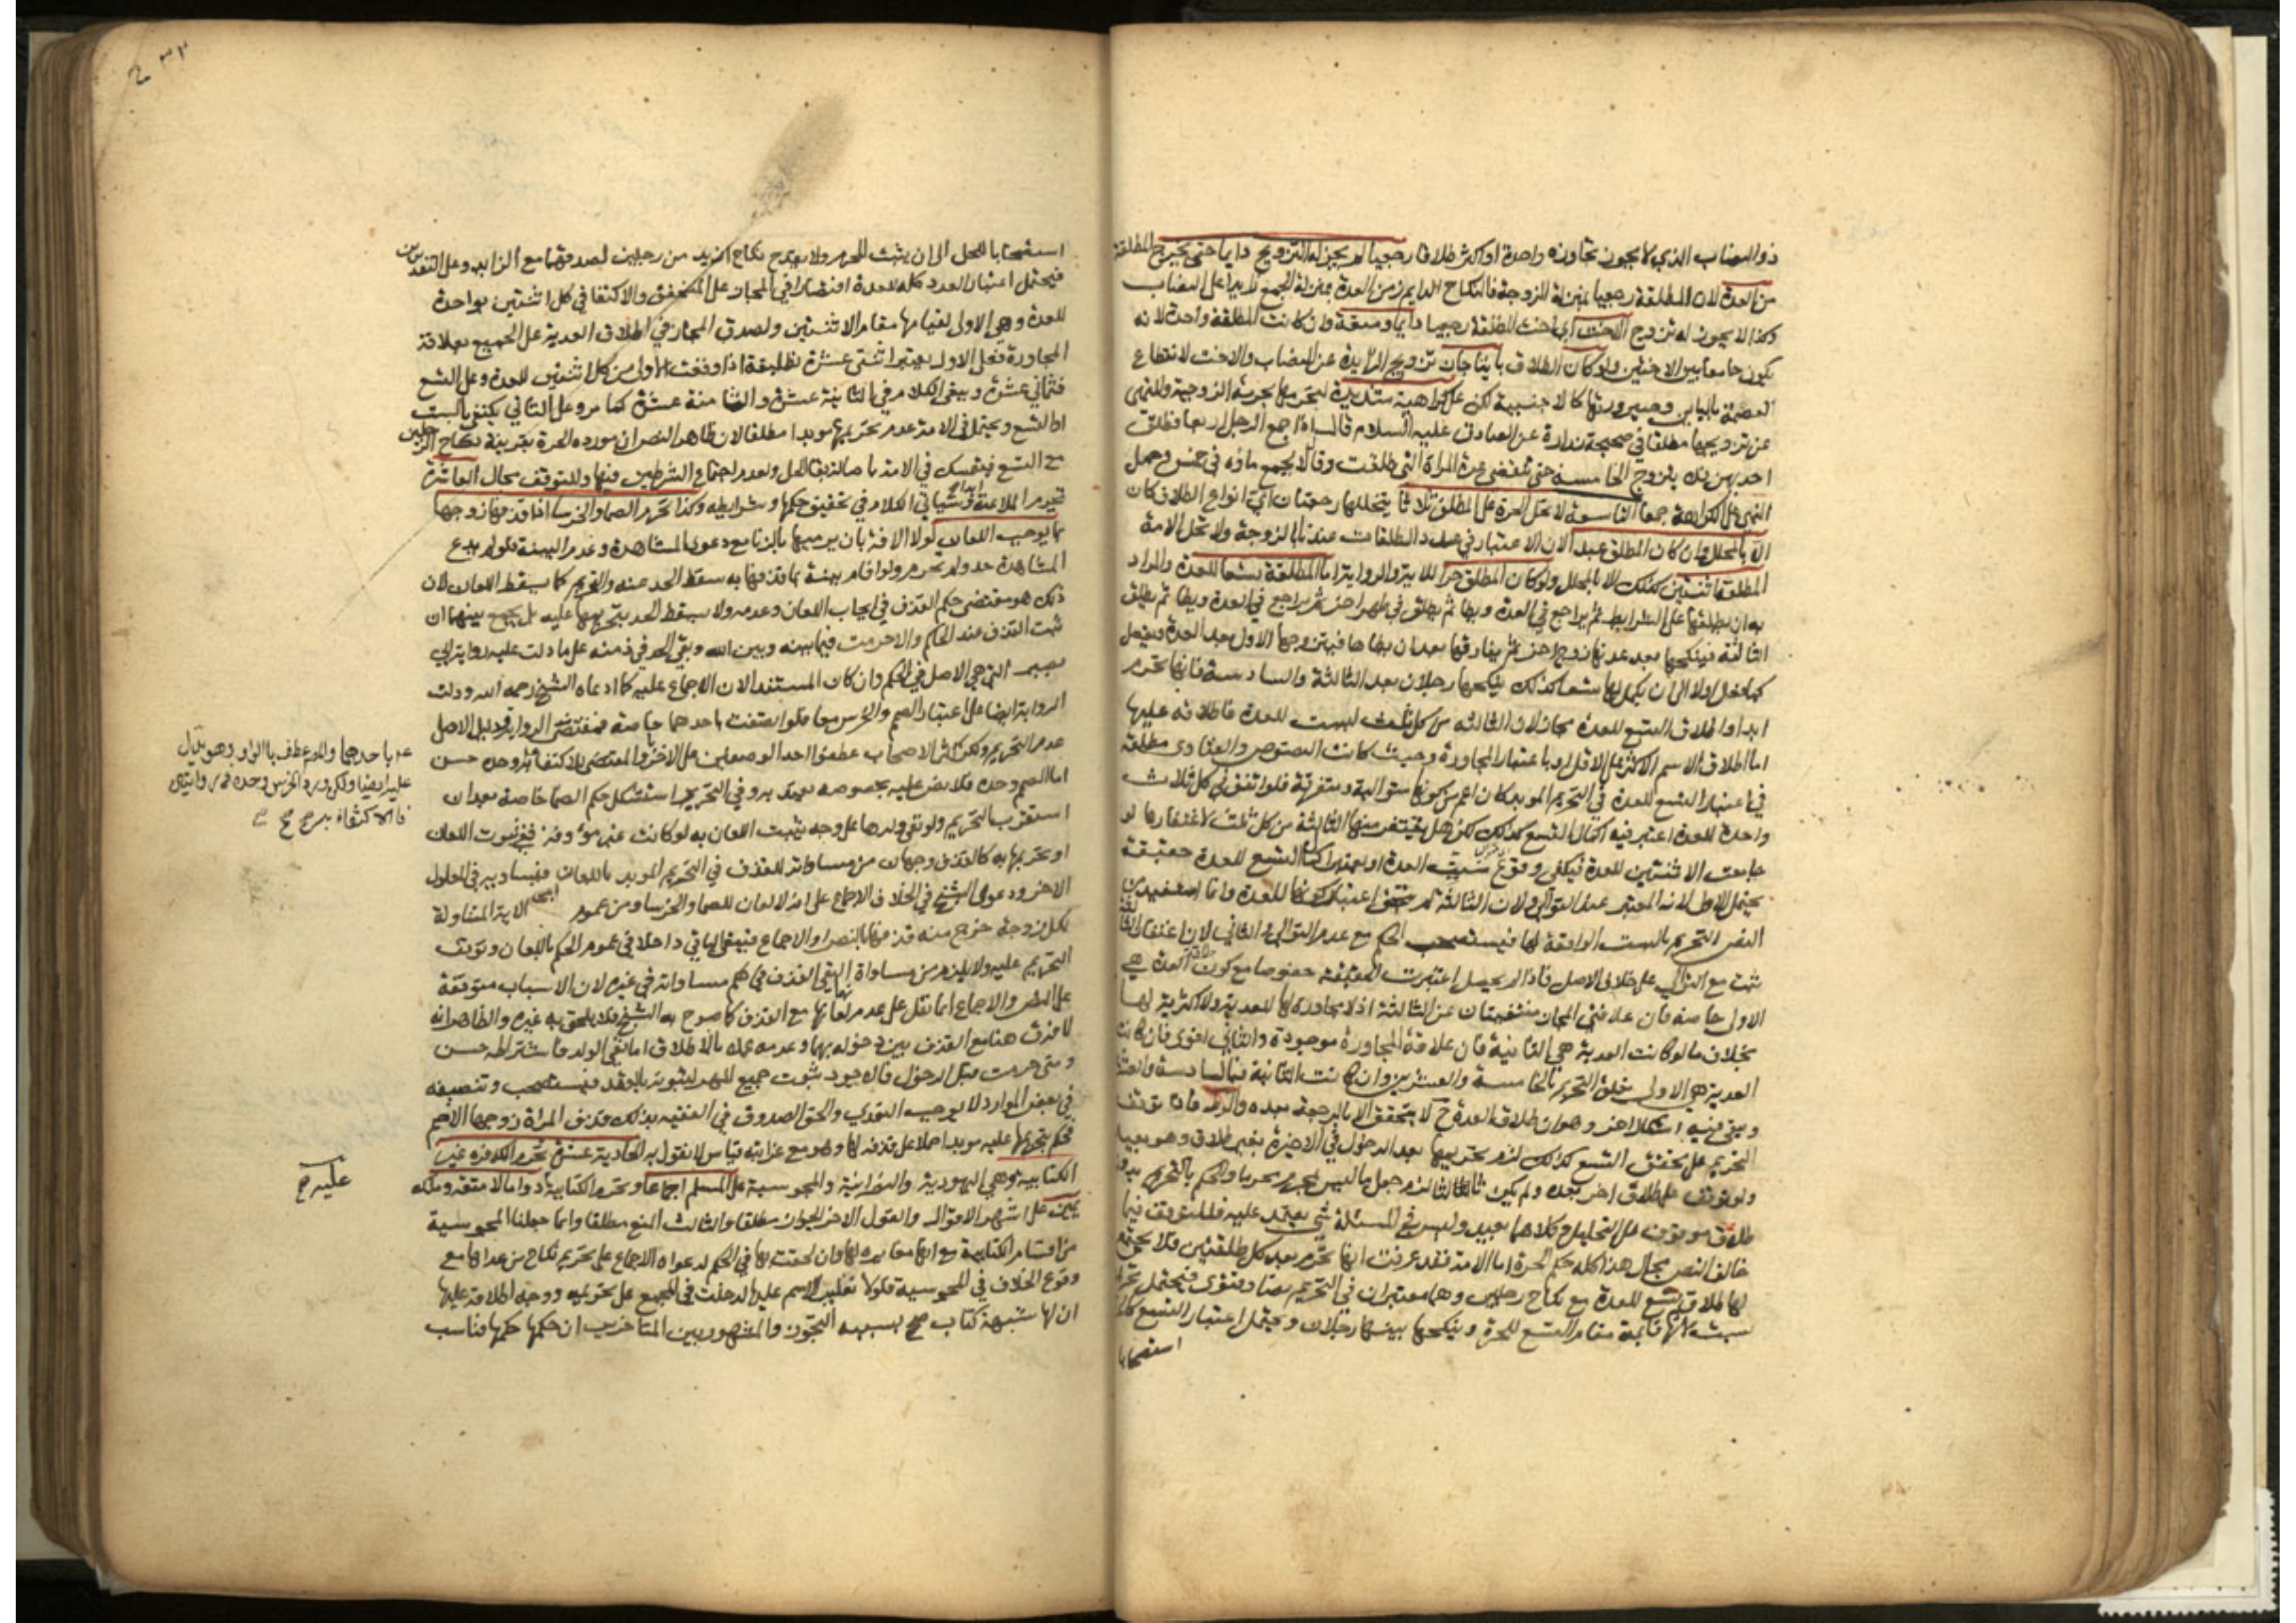 ذو النصاب الذي لا يجوز تجاوزه واحدة او اكثر طلاقا رجعيا لم يجز له التزويج دايما حتى تخرج المطلقة
من العدة لان المطلقة رجعيا بمنزلة الزوجة فالنكاح الدايم زمن العدة بمنزلة الجمع زايدا على النصاب
وكذا لا يجوز له تزوج الاخت اي اخت المطلقة رجعيا دايما ومتعة وان كانت المطلقة واحدة لانه
يكون جامعا بين الاختين ولو كان الطلاق باينا جاز تزويج الزايدة عن النصاب والاخت لانقطاع
العصمة بالباين وصيرورتها كالاجنبية لكن على كراهية شديدة لتحرمها بحرمة الزوجية وللنهي
عن تزويجها مطلقا في صحيحة زرارة عن الصادق عليه السلام قال اذا جمع الرجل اربعا فطلق
احديهن فلا يتزوج الخامسة حتى تنقضي عدة المراة التي طلقت وقال لا يجمع ماؤه في خمس وحمل
النهي على الكراهة جمعا التاسعة لا تحل الحرة على المطلق ثلاثا يتخللها رجعتان اي انواع الطلاق كان
الا بالمحلل وان كان المطلق عبدا لان الاعتبار في عدد الطلقات عندنا بالزوجة ولا تحل الامة
المطلقة اثنتين كذلك الا بالمحلل ولو كان المطلق حرا للاية والرواية اما المطلقة تسعا للعدة والمراد
به ان يطلقها على الشرايط ثم يراجع في العدة ويطا ثم يطلق في طهر اخر ثم يراجع في العدة ويطا ثم يطلق
الثالثة فينكحها بعد عدتها زوج اخر ثم يفارقها بعد ان يطاها فيتزوجها الاول بعد العدة ويفعل
كما فعل اولا الى ان يكمل لها تسعا كذلك ينكحها رجلان بعد الثالثة والسادسة فانها تحرم
ابدا واطلاق التسع للعدة مجاز لان الثالثة من كل ثلث ليست للعدة فاطلاقه عليها
اما اطلاق لاسم الاكثر على الاقل او باعتبار المجاورة وحيث كانت النصوص والفتاوى مطلقة
في اعتبار التسع للعدة في التحريم الموبد كان اعم من كونها متوالية ومتفرقة فلو اتفق في كل ثلاث
واحدة للعدة اعتبر فيه اكمال التسع كذلك لكن هل يغتفر منها الثالثة من كل ثلث لاغتفارها لو
جامعت الاثنتين للعدة فيكفي وقوع ست للعدة او يعتبر اكمال التسع للعدة حقيقة
يحتمل الاول لانه المعتبر عند التوالي ولان الثالثة لم يتحقق اعتبار كونها للعدة وانما استفيد من
النص التحريم بالست الواقعة لها فيستصحب الحكم مع عدم التوالي والثاني لان اغتفار الثالثة
ثبت مع التوالي على خلاف الاصل فاذا لم يحصل اعتبرت الحقيقة خصوصا مع كون طلقة العدة هي
الاولى خاصة فان علاقتي المجاز منتفيتان عن الثالثة اذ لا مجاورة لها للعدية ولا اكثرية لها
بخلاف ما لو كانت العدية هي الثانية فان علاقة المجاورة موجودة والثاني اقوى فان كانت
العدية هي الاولى تعلق التحريم بالخامسة والعشرين وان كانت الثانية فبالسادسة والعشرين
ويبقى فيه اشكال اخر وهو ان طلاق العدة ح لا يتحقق الا بالرجعة بعده والوطء فاذا توقف
التحريم على تحقق التسع كذلك لزم تحريمها بعد الدخول في الاخيرة بغير طلاق وهو بعيد
ولو توقف على طلاق اخر بعده ولم يكن ثالثا لزم جعل ما ليس بمحرم محرما والحكم بالتحريم بدون
طلاق موقوف على التحليل وكلاهما بعيد وليس في المسئلة شي يعتمد عليه فللتوقف فيما
خالف النص مجال هذا كله حكم الحرة اما الامة فقد عرفت انها تحرم بعد كل طلقتين فلا يجتمع
لها طلاق تسع للعدة مع نكاح رجلين وهما معتبران في التحريم نصا وفتوى فيحتمل تحريمها
بست لانها قائمة مقام التسع للحرة وينكحها بينها رجلان ويحتمل اعتبار التسع كالحرة
استصحابا
٢٣٢
استصحابا للحل الى ان يثبت المحرم ولا يقدح نكاح ازيد من رجلين لصدقهما مع الزايد وعلى التقديرين
فيحتمل اعتبار العدد كله للعدة اقتصارا في المجاز على المتحقق والاكتفا في كل اثنتين بواحدة
للعدة وهي الاولى لقيامها مقام الاثنتين ولصدق المجاز في اطلاق العدية على الجميع بعلاقة
المجاورة فعلى الاول يعتبر اثنتى عشرة تطليقة اذا وقعت الاولى من كل اثنتين للعدة وعلى التسع
فثماني عشرة ويبقى الكلام في الثانية عشرة والثامنة عشرة كما مر وعلى الثاني يكتفى بالست
او التسع ويحتمل في الامة عدم تحريمها موبدا مطلقا لان ظاهر النص ان مورده الحرة بقرينة نكاح الرجلين
مع التسع فيتمسك في الامة باصالة بقا الحل ولعدم اجتماع الشرطين فيها وللتوقف مجال العاشرة
تحرم الملاعنة ابدا وسياتي الكلام في تحقيق حكمها وشرايطه وكذا تحرم الصما والخرسا اذا قذفها زوجها
بما يوجب اللعان لولا الافة بان يرميها بالزنا مع دعوى المشاهدة وعدم البينة فلو لم يدع
المشاهدة حد ولم تحرم ولو اقام بينة بما قذفها به سقط الحد عنه والتحريم كما يسقط اللعان لان
ذلك هو مقتضى حكم القذف في ايجاب اللعان وعدمه ولا يسقط الحد بتحريمها عليه بل يجمع بينهما ان
ثبت القذف عند الحاكم والا حرمت فيما بينه وبين الله وبقي الحد في ذمته على ما دلت عليه رواية ابي
بصير التي هي الاصل في الحكم وان كان المستند الان الاجماع عليه كما ادعاه الشيخ رحمه الله ودلت
الرواية ايضا على اعتبار الصمم والخرس معا فلو اتصفت باحدهما خاصة فمقتضى الرواية ودليل الاصل
عدم التحريم ولكن اكثر الاصحاب عطفوا احد الوصفين على الاخر باو المقتضى للاكتفا
اما الصمم وحده فلا نص عليه بخصوصه يعتد به وفي التحرير استشكل حكم الصما خاصة بعد ان
استقرب التحريم ولو نفى ولدها على وجه يثبت اللعان به لو كانت غير مؤوفة ففي ثبوت اللعان
او تحريمها به كالقذف وجهان من مساواته للقذف في التحريم الموبد باللعان فيساويه في المعلول
الاخر ودعوى الشيخ في الخلاف الاجماع على انه لا لعان للصما والخرسا ومن عموم الاية المتناولة
لكل زوجة خرج منه قذفها بالنص او الاجماع فيبقى الباقي داخلا في عموم الحكم باللعان وتوقف
التحريم عليه ولا يلزم من مساواة النفي القذف في حكم مساواته في غيره لان الاسباب متوقفة
على النص والاجماع انما نقل على عدم لعانها مع القذف كما صرح به الشيخ فلا يلحق به غيره والظاهر انه
لا فرق هنا مع القذف بين دخوله بها وعدمه عملا بالاطلاق اما نفي الولد فاشتراطه حسن
ومتى حرمت قبل الدخول فالاجود ثبوت جميع المهر لثبوته بالعقد فيستصحب وتنصيفه
في بعض الموارد لا يوجب التعدي والحق الصدوق في الفقيه بذلك قذف المراة زوجها الاصم
فحكم بتحريمها عليه موبدا حملا على قذفه لها وهو مع غرابته قياس لا نقول به الحادية عشرة تحرم الكافرة غير
الكتابية وهي اليهودية والنصرانية والمجوسية على المسلم اجماعا وتحرم الكتابية دواما لا متعة وملك
يمين على اشهر الاقوال والقول الاخر الجواز مطلقا والثالث المنع مطلقا وانما جعلنا المجوسية
من اقسام الكتابية مع انها مغايرة لها وان لحقت بها في الحكم لدعواه الاجماع على تحريم نكاح من عداها مع
وقوع الخلاف في المجوسية فلولا تغليبه الاسم عليها لدخلت في المجمع على تحريمه ووجه اطلاقه عليها
ان لها شبهة كتاب صح بسببه التجوز والمشهور بين المتاخرين ان حكمها حكمها فناسب